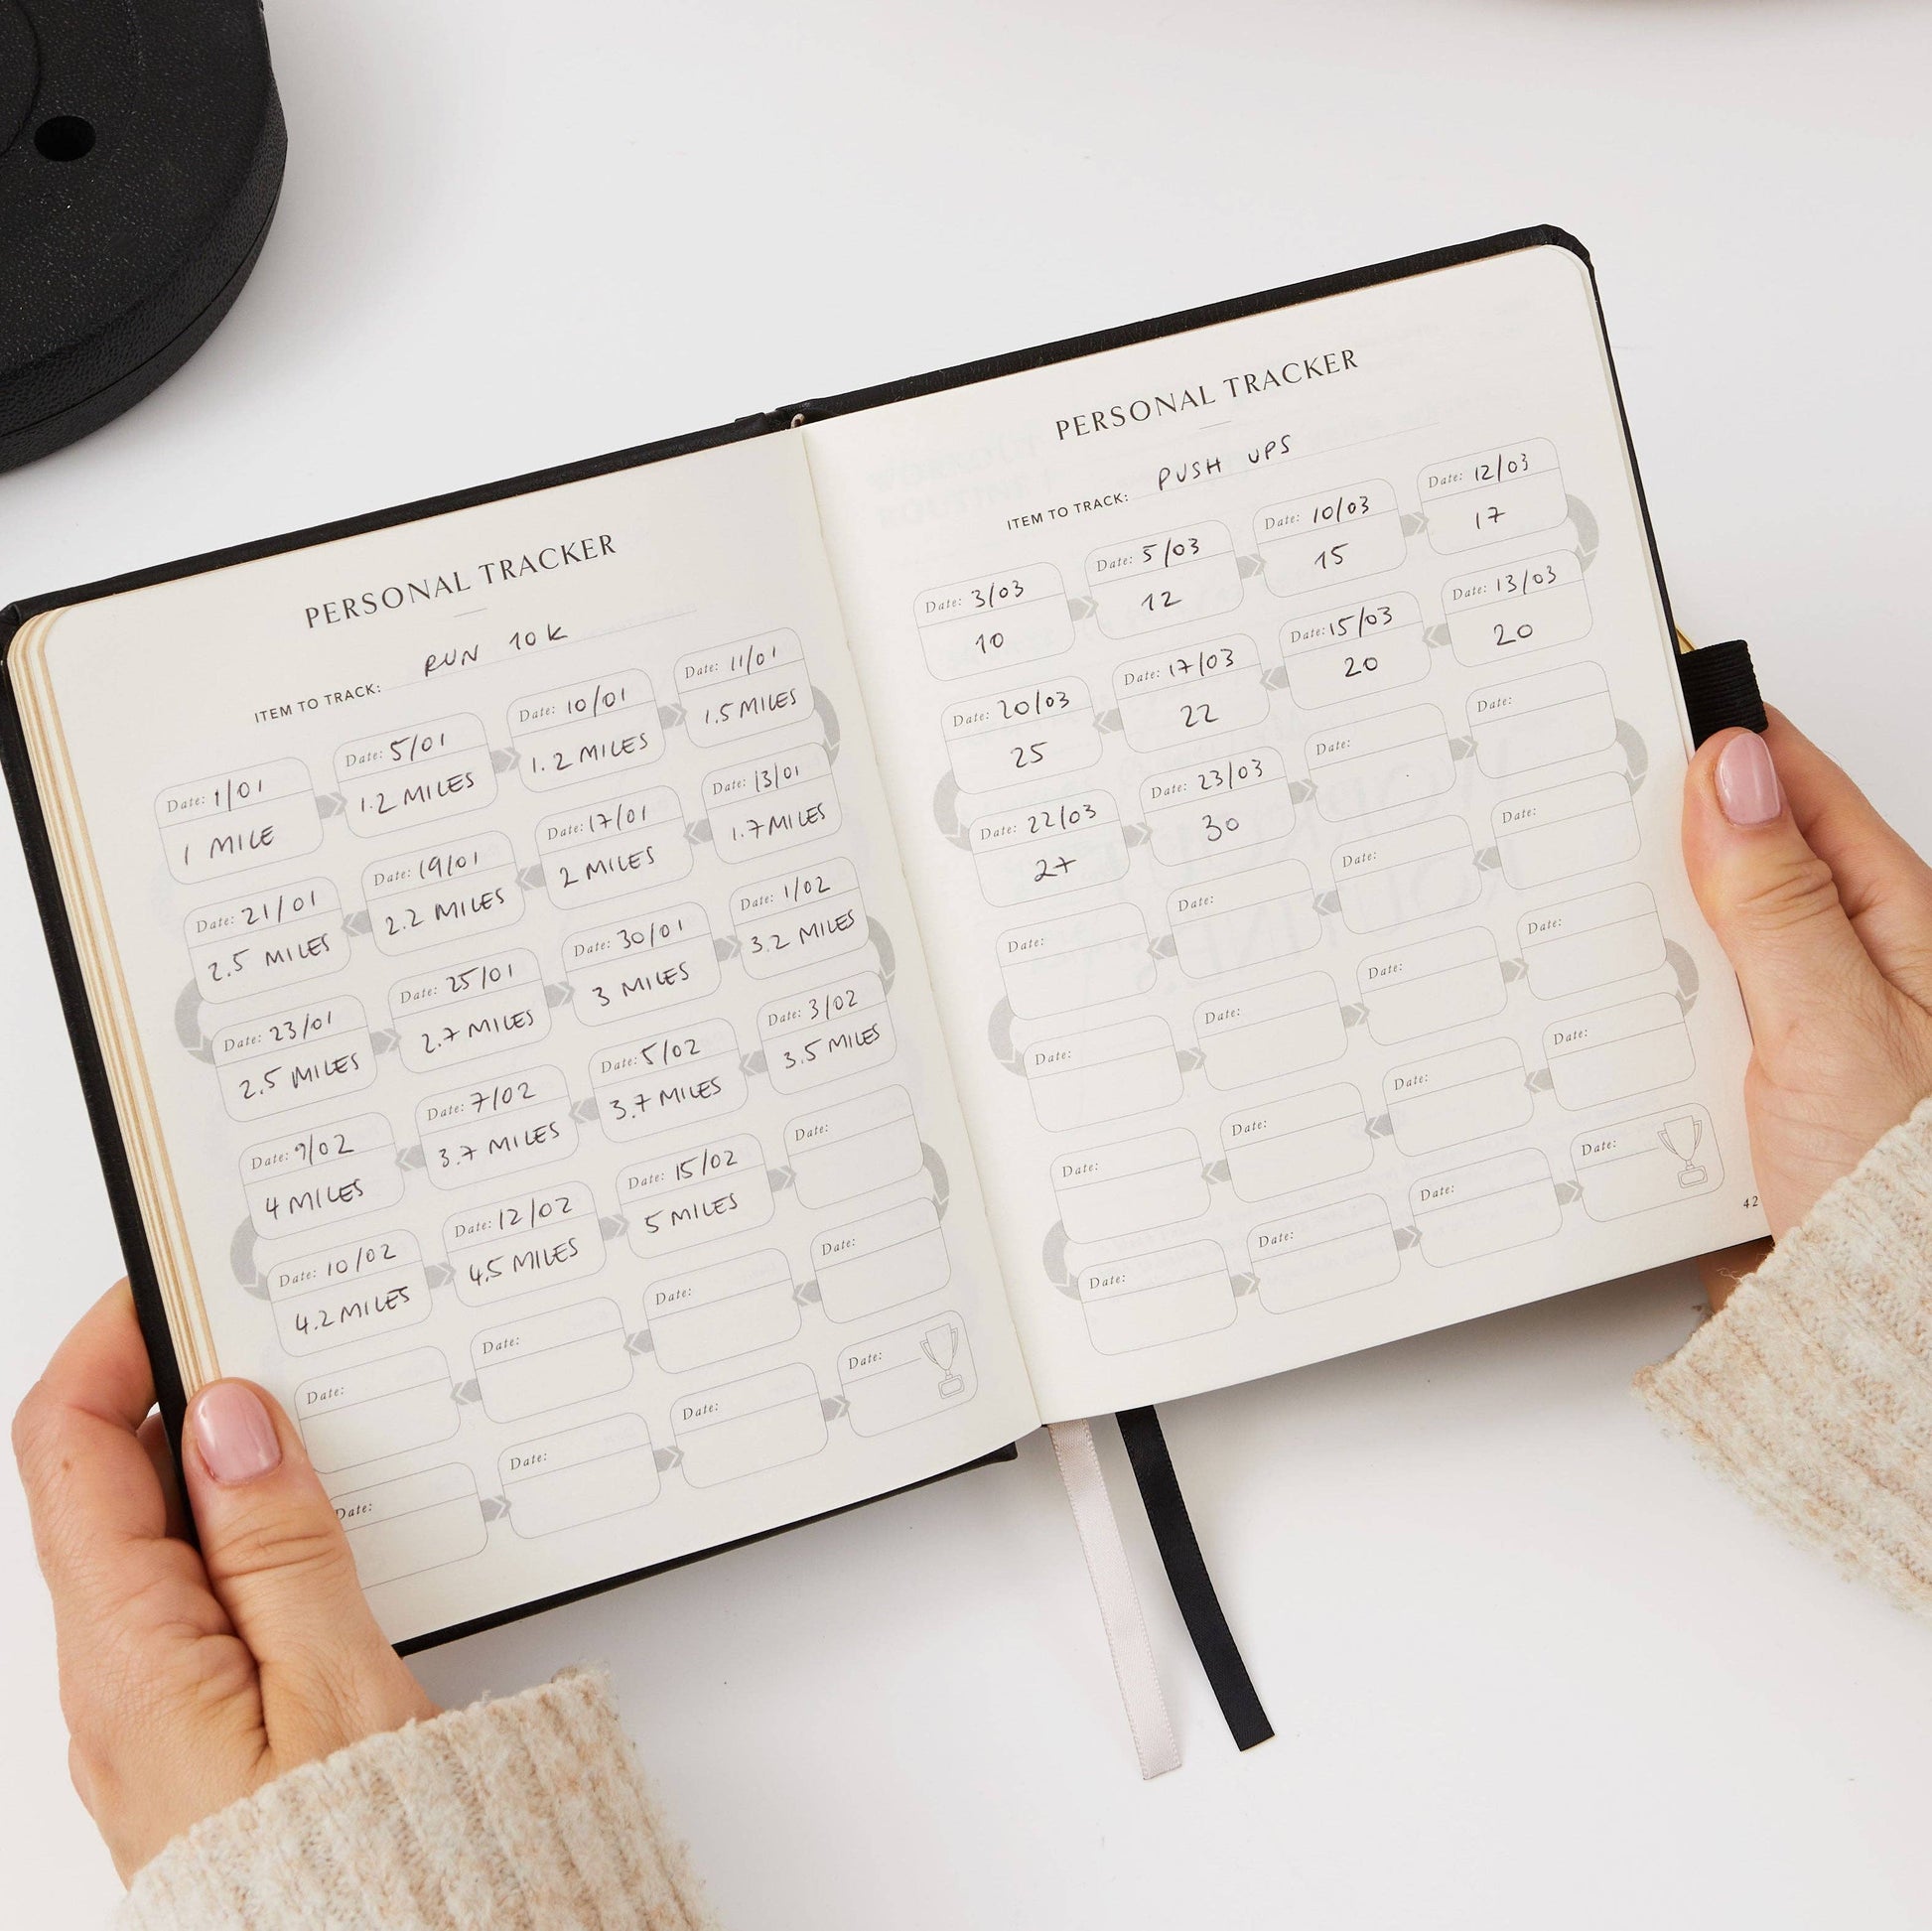 PERSONAL TRACKER
ITEM TO TRACK: RUN 10K
Date: 1/01 Date: 5/01 Date: 10/01 Date: 11/01
1 MILE 1.2 MILES 1.2 MILES 1.5 MILES
Date: 21/01 Date: 19/01 Date: 17/01 Date: 13/01
2.5 MILES 2.2 MILES 2 MILES 1.7 MILES
Date: 23/01 Date: 25/01 Date: 30/01 Date: 1/02
2.5 MILES 2.7 MILES 3 MILES 3.2 MILES
Date: 9/02 Date: 7/02 Date: 5/02 Date: 3/02
4 MILES 3.7 MILES 3.7 MILES 3.5 MILES
Date: 10/02 Date: 12/02 Date: 15/02 Date:
4.2 MILES 4.5 MILES 5 MILES
Date: Date: Date: Date:
Date: Date: Date: Date:
PERSONAL TRACKER
ITEM TO TRACK: PUSH UPS
Date: 3/03 Date: 5/03 Date: 10/03 Date: 12/03
10 12 15 17
Date: 20/03 Date: 17/03 Date: 15/03 Date: 13/03
25 22 20 20
Date: 22/03 Date: 23/03 Date: Date:
27 30
Date: Date: Date: Date:
Date: Date: Date: Date:
Date: Date: Date: Date:
Date: Date: Date: Date:
42